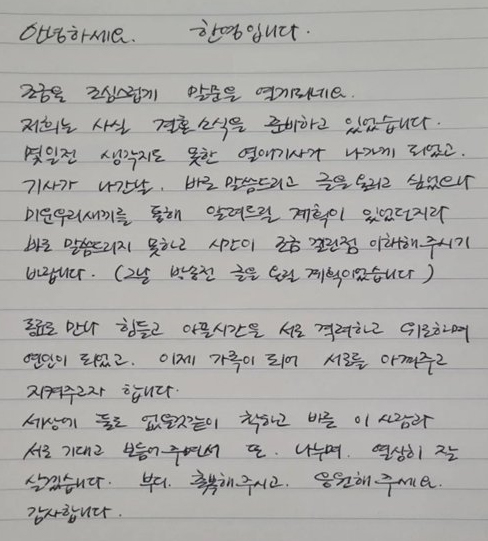 안녕하세요. 한영입니다.
조금은 조심스럽게 말문을 열게되네요.
저희는 사실 결혼소식을 준비하고 있었습니다.
몇일전 생각지도 못한 열애기사가 나가게 되었고.
기사가 나간날. 바로 말씀드리고 글을 올리고 싶었으나
미운우리새끼를 통해 알려드릴 계획이 있었던지라
바로 말씀드리지 못하고 시간이 조금 걸린점 이해해주시기
바랍니다. (그날 방송전 글을 올릴 계획이었습니다)
동료로 만나 힘들고 아플시간을 서로 격려하고 위로하며
연인이 되었고. 이제 가족이 되어 서로를 아껴주고
지켜주고자 합니다.
세상에 둘도 없을것같이 착하고 바른 이 사람과
서로 기대고 보듬어주면서 또. 나누며. 열심히 잘
살겠습니다. 부디. 축복해주시고. 응원해주세요.
감사합니다.